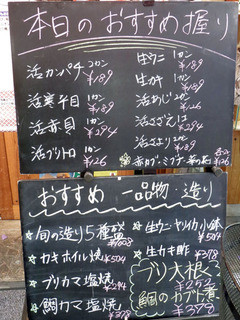 本日のおすすめ握り
活カンパチ 2カン ¥189
活寒平目 1カン ¥189
活赤貝 1カン ¥294
活ブリトロ 1カン ¥126
生ウニ 1カン ¥189
生カキ 1カン ¥189
活あじ 1カン ¥126
活さざえ ¥294
活さより 1カン ¥189
おすすめ 一品物・造り
☆旬の造り5種盛 ¥1008
☆カキホイル焼 ¥504
☆ブリカマ塩焼 ¥294
☆鯛カマ塩焼 ¥378
☆生ウニヤリイカ小鉢 ¥504
☆生カキ酢 ¥378
ブリ大根 ¥252
鯛のカブト煮 ¥378